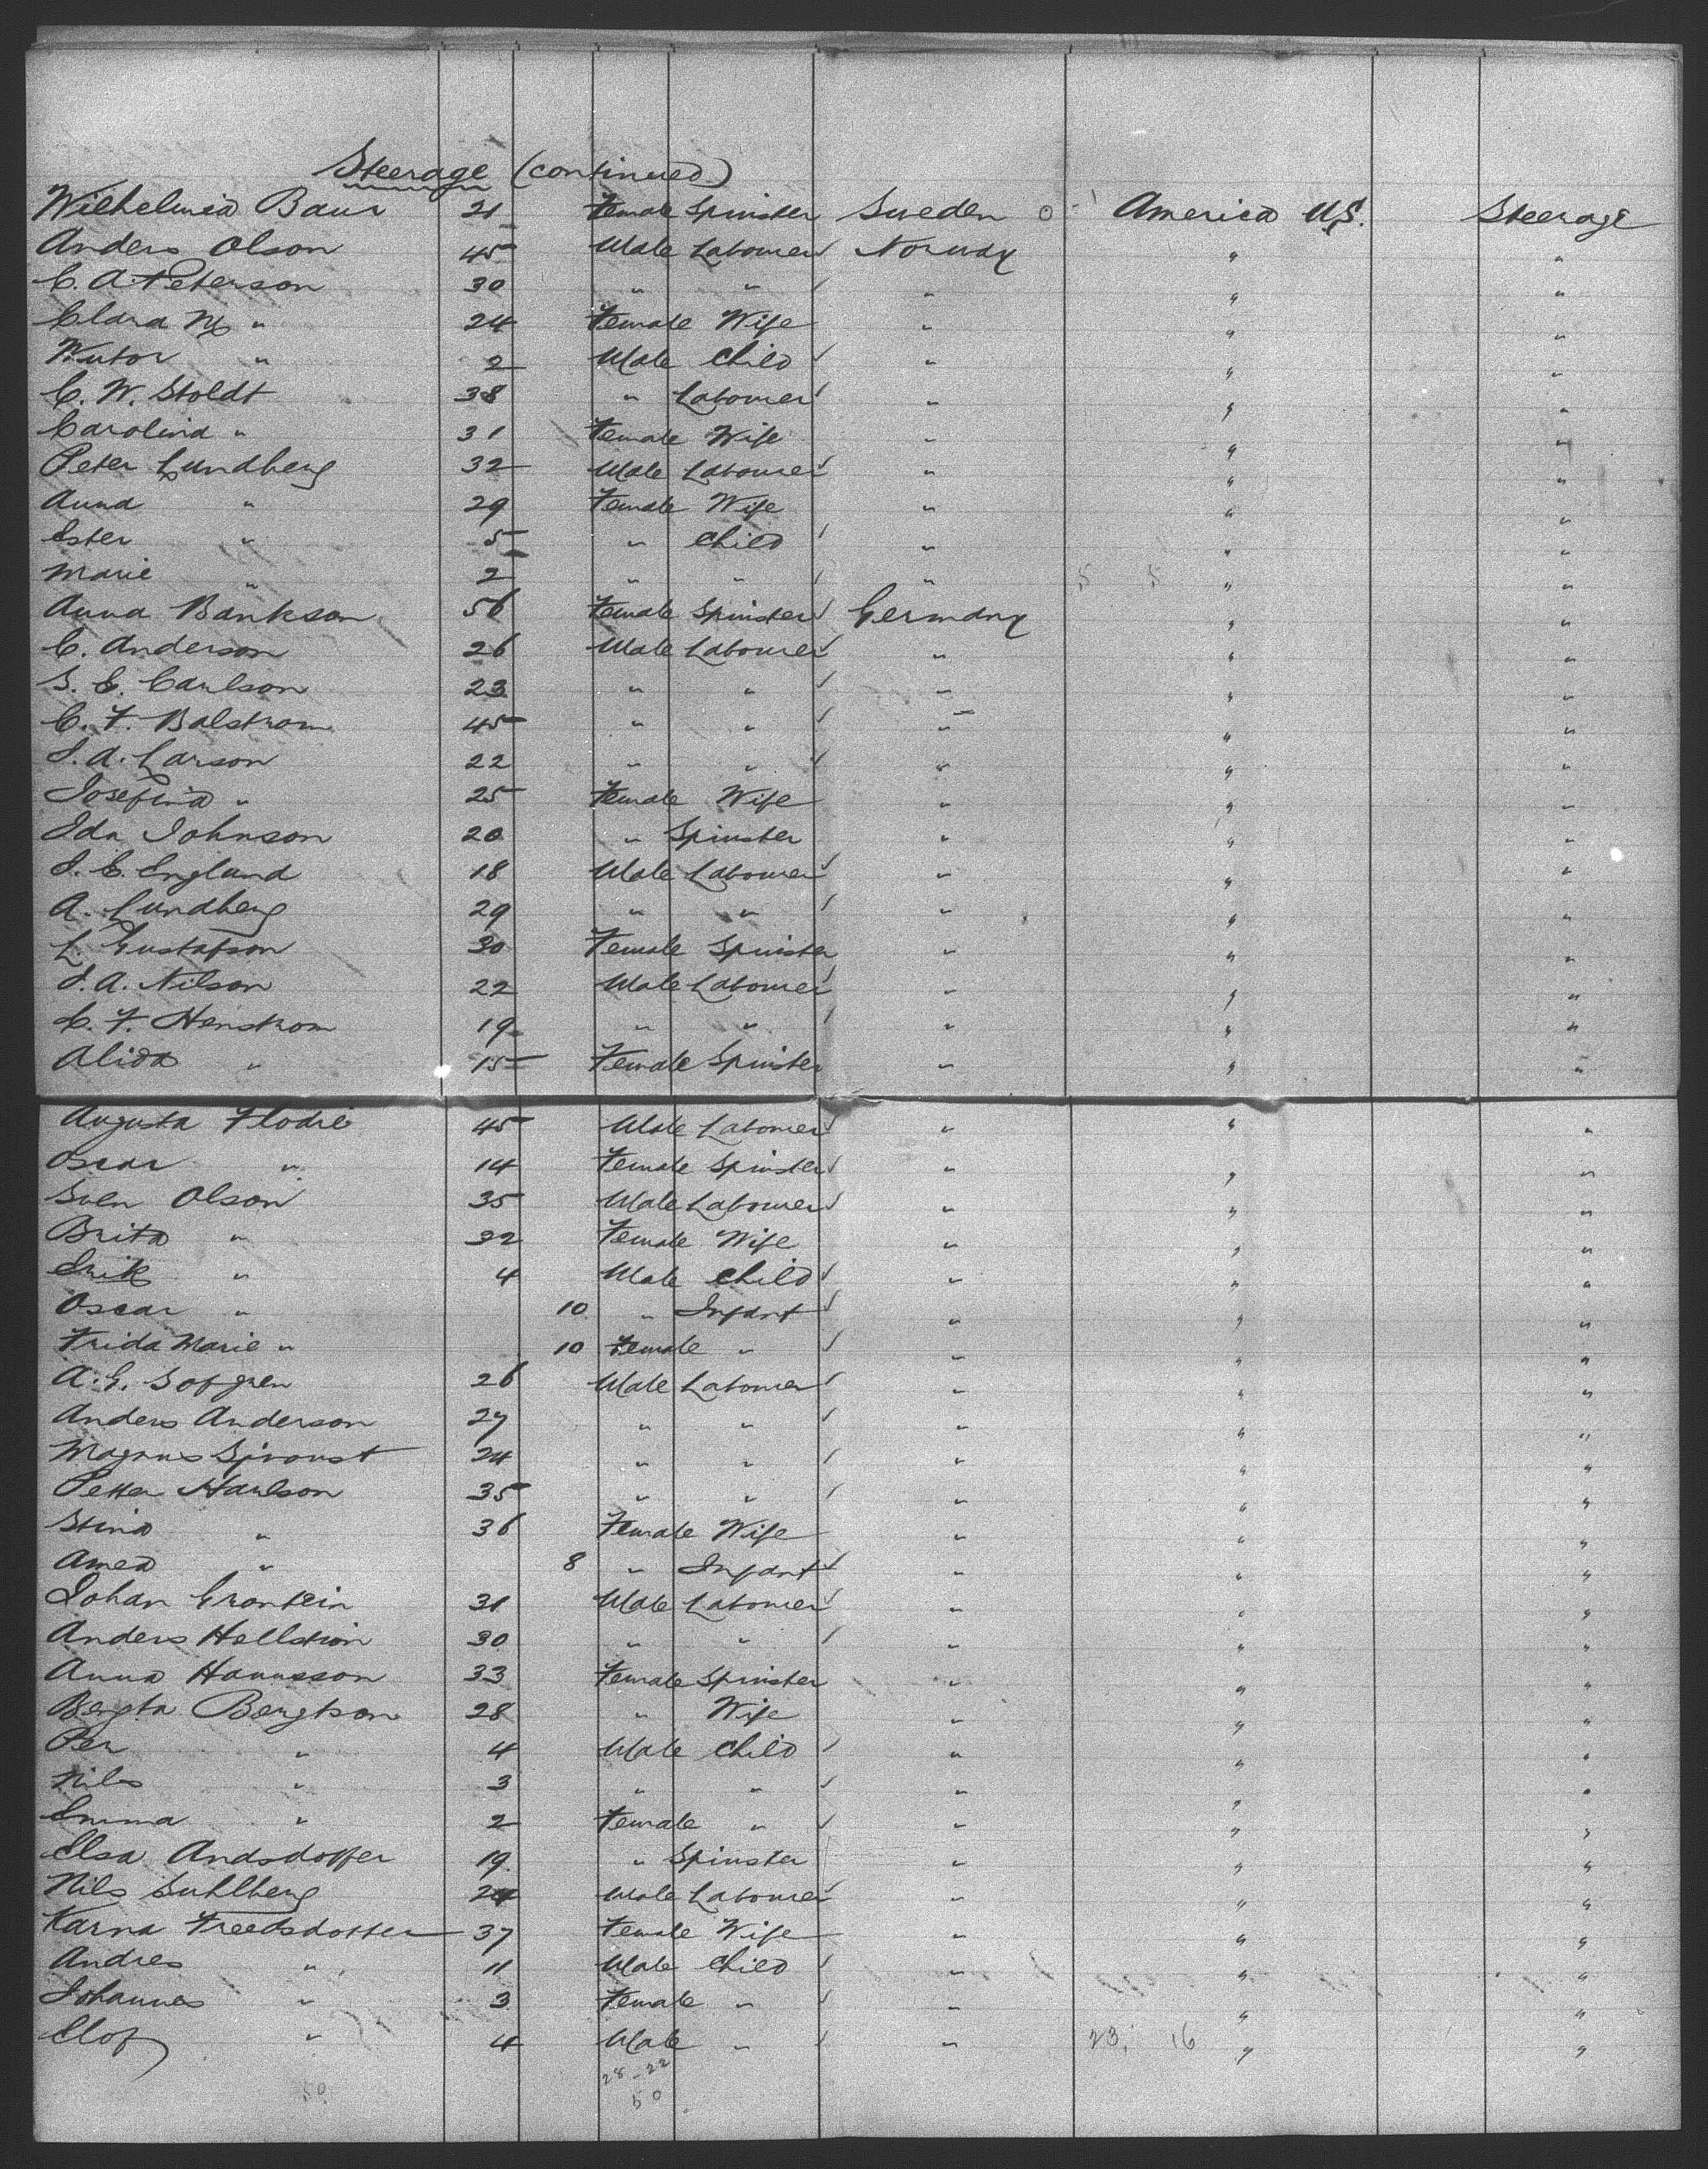 Steerage (continued)
Wilhelmia Baur 21 Female Spinster Sweden America U.S. Steerage
Anders Olson 45 Male Labourer Norway " "
C. A. Peterson 30 " " " " "
Clara M. " 24 Female Wife " " "
" 2 Male Child " " "
C. W. Stoldt 38 " Labourer " " "
Carolina " 31 Female Wife " " "
Peter Lundberg 32 Male Labourer " " "
Anna " 29 Female Wife " " "
Ester " 5 " Child " " "
Marie " 2 " " " 5 5 " "
Anna Bankson 56 Female Spinster Germany " "
C. Anderson 26 Male Labourer " " "
S. E. Carlson 23 " " " " "
C. F. Balstrom 45 " " " " "
J. A. Larson 22 " " " " "
Josefina " 25 Female Wife " " "
Ida Johnson 20 " Spinster " " "
J. E. Englund 18 Male Labourer " " "
A. Lundberg 29 " " " " "
L. Gustafson 30 Female Spinster " " "
J. A. Nilson 22 Male Labourer " " "
C. F. Henstrom 19 " " " " "
Alida " 15 Female Spinster " " "
Augusta Flodie 45 Male Labourer " " "
Oscar " 14 Female Spinster " " "
Sven Olson 35 Male Labourer " " "
Brita " 32 Female Wife " " "
Erik " 4 Male Child " " "
Oscar " 10 " Infant " " "
Frida Marie " 10 Female " " " "
A. G. Sofgren 26 Male Labourer " " "
Anders Anderson 27 " " " " "
Magnus 24 " " " " "
Petter Harlson 35 " " " " "
Stina " 36 Female Wife " " "
Amea " 8 " Infant " " "
Johan 31 Male Labourer " " "
Anders Hellstrom 30 " " " " "
Anna Hannsson 33 Female Spinster " " "
Bengta Bengtson 28 " Wife " " "
Per " 4 Male Child " " "
Nils " 3 " " " " "
Emma " 2 Female " " " "
Elsa Andsdotter 19 " Spinster " " "
Nils Suhlberg 24 Male Labourer " " "
Karna Freedsdotter 37 Female Wife " " "
Andres " 11 Male Child " " "
Johannes " 3 Female " " " "
Elof " 4 Male " " 23 16 " "
28-22
50 50